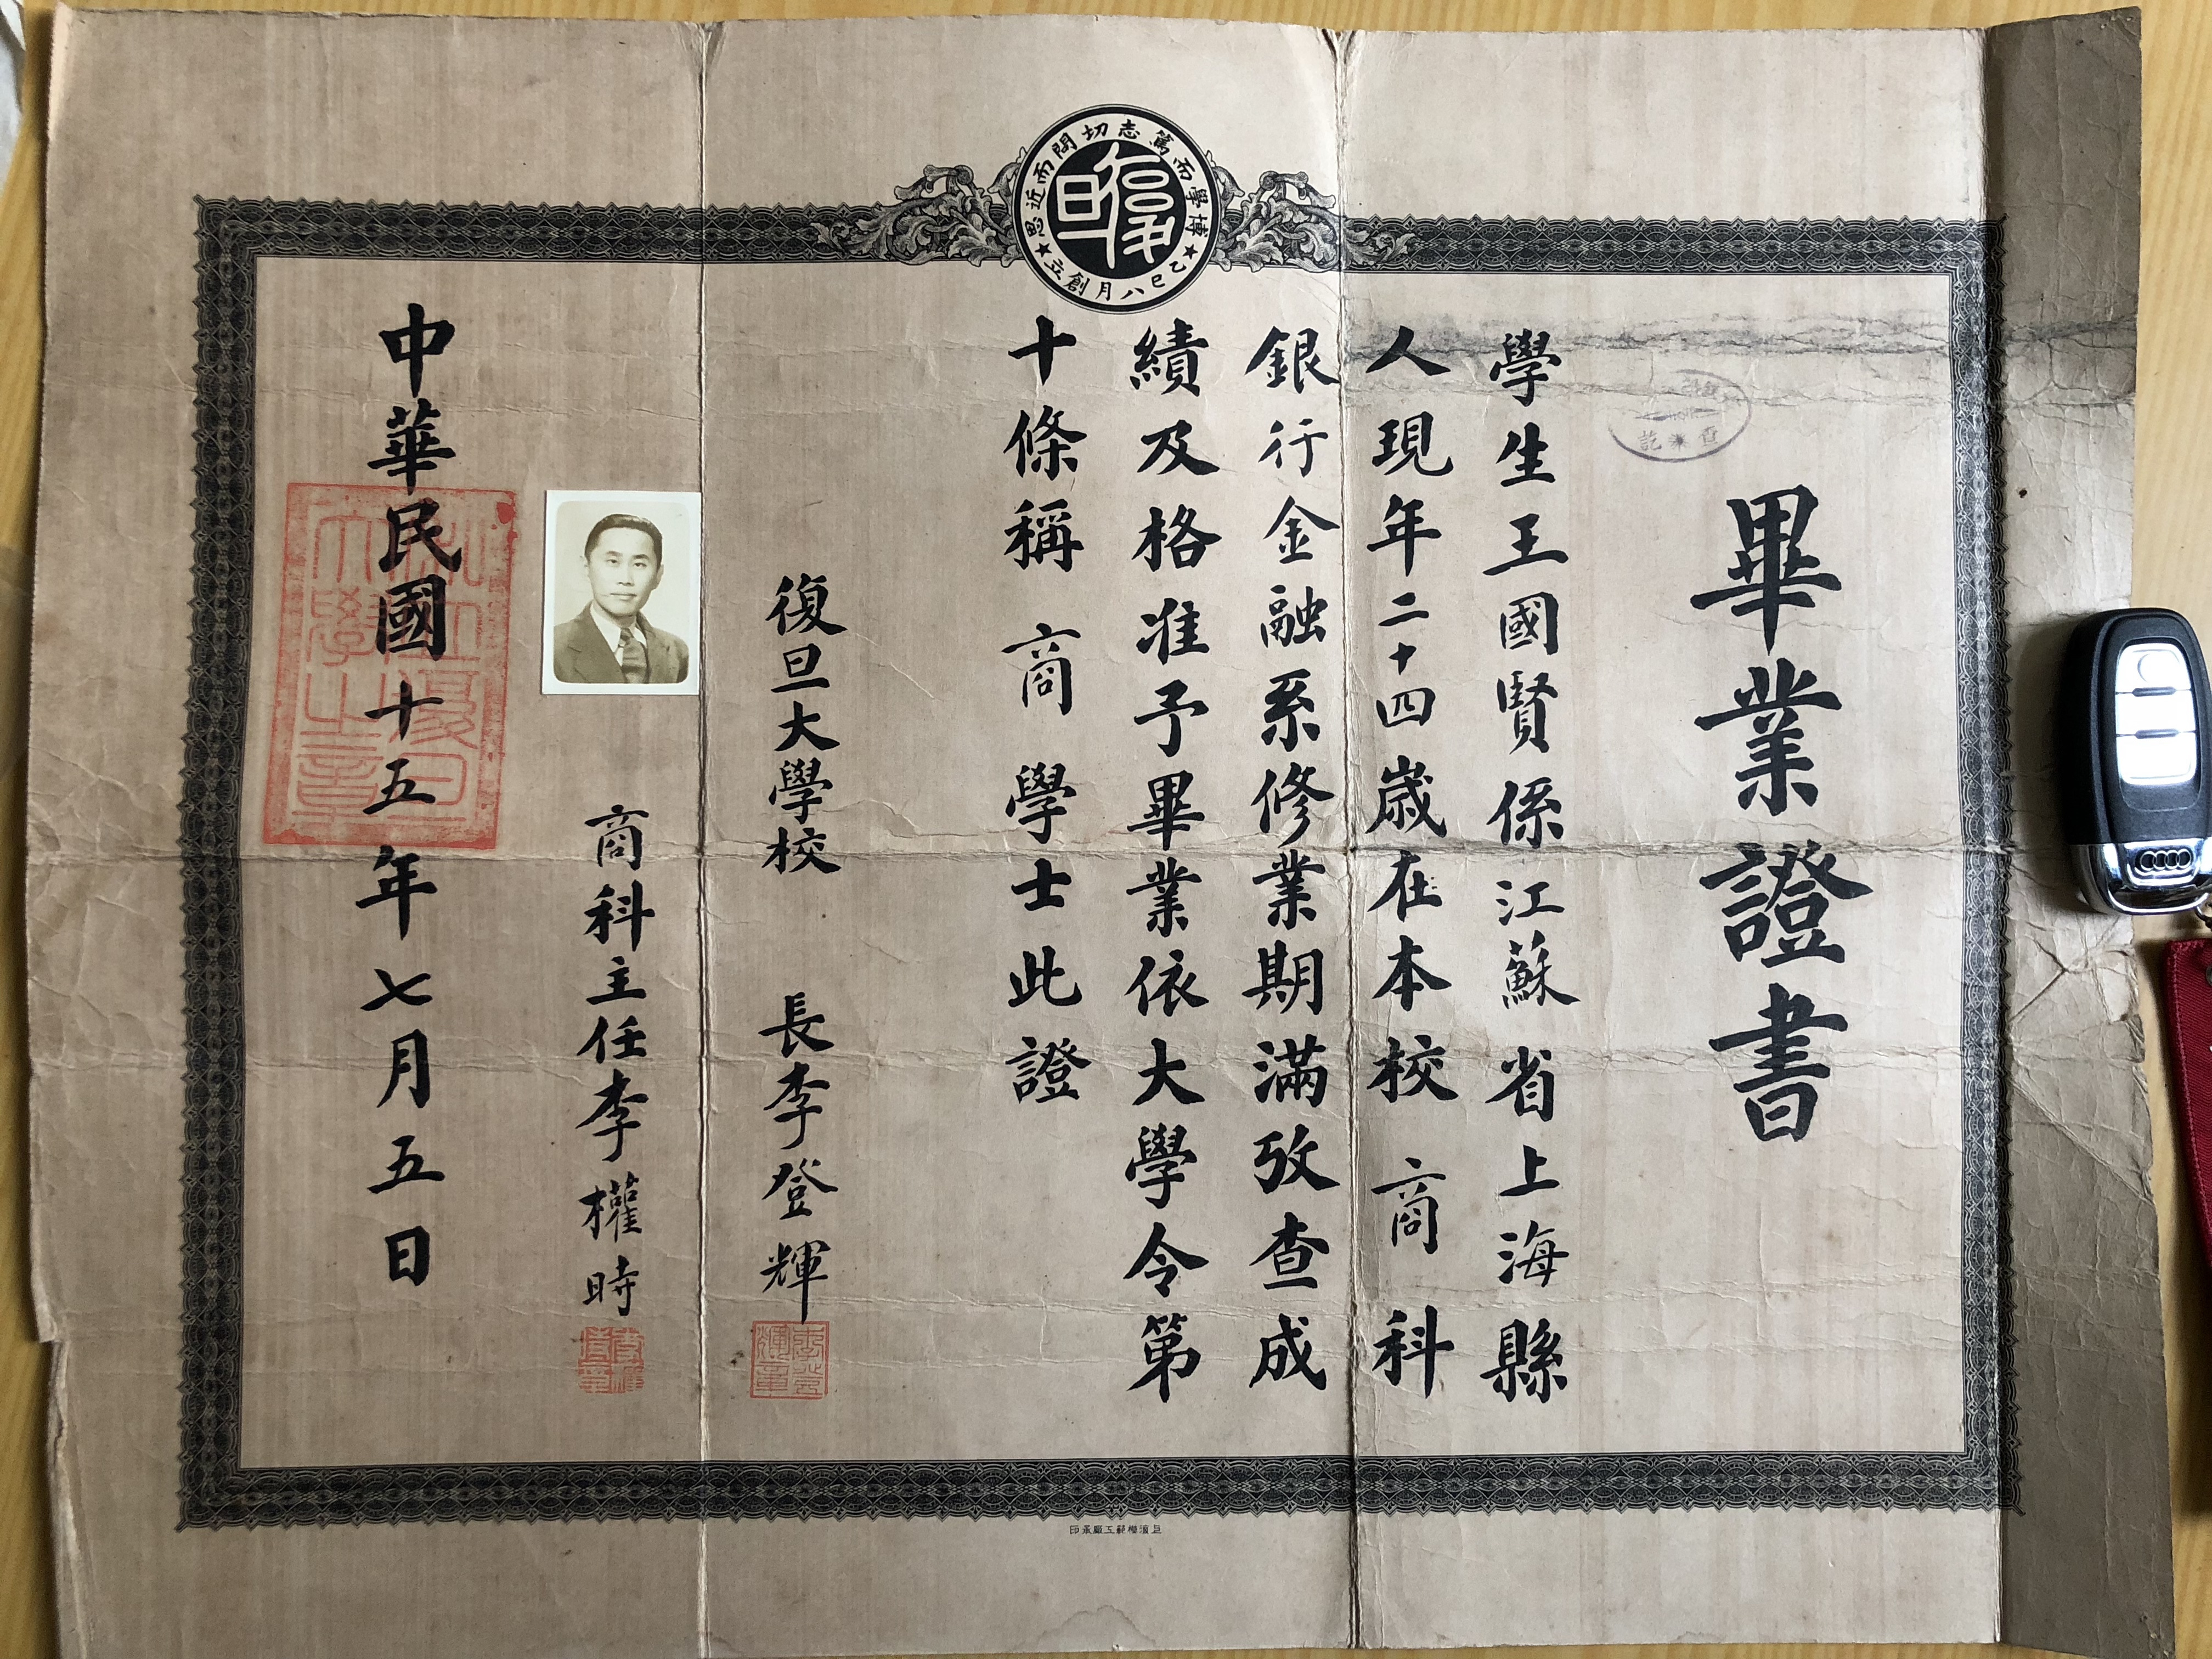 博學而篤志切問而近思
復旦
乙巳八月創立
畢業證書
學生王國賢係江蘇省上海縣
人現年二十四歲在本校商科
銀行金融系修業期滿攷查成
績及格准予畢業依大學令第
十條稱商學士此證
復旦大學校長李登輝
李登輝章
商科主任李權時
中華民國十五年七月五日
私立復旦大學之章
查訖